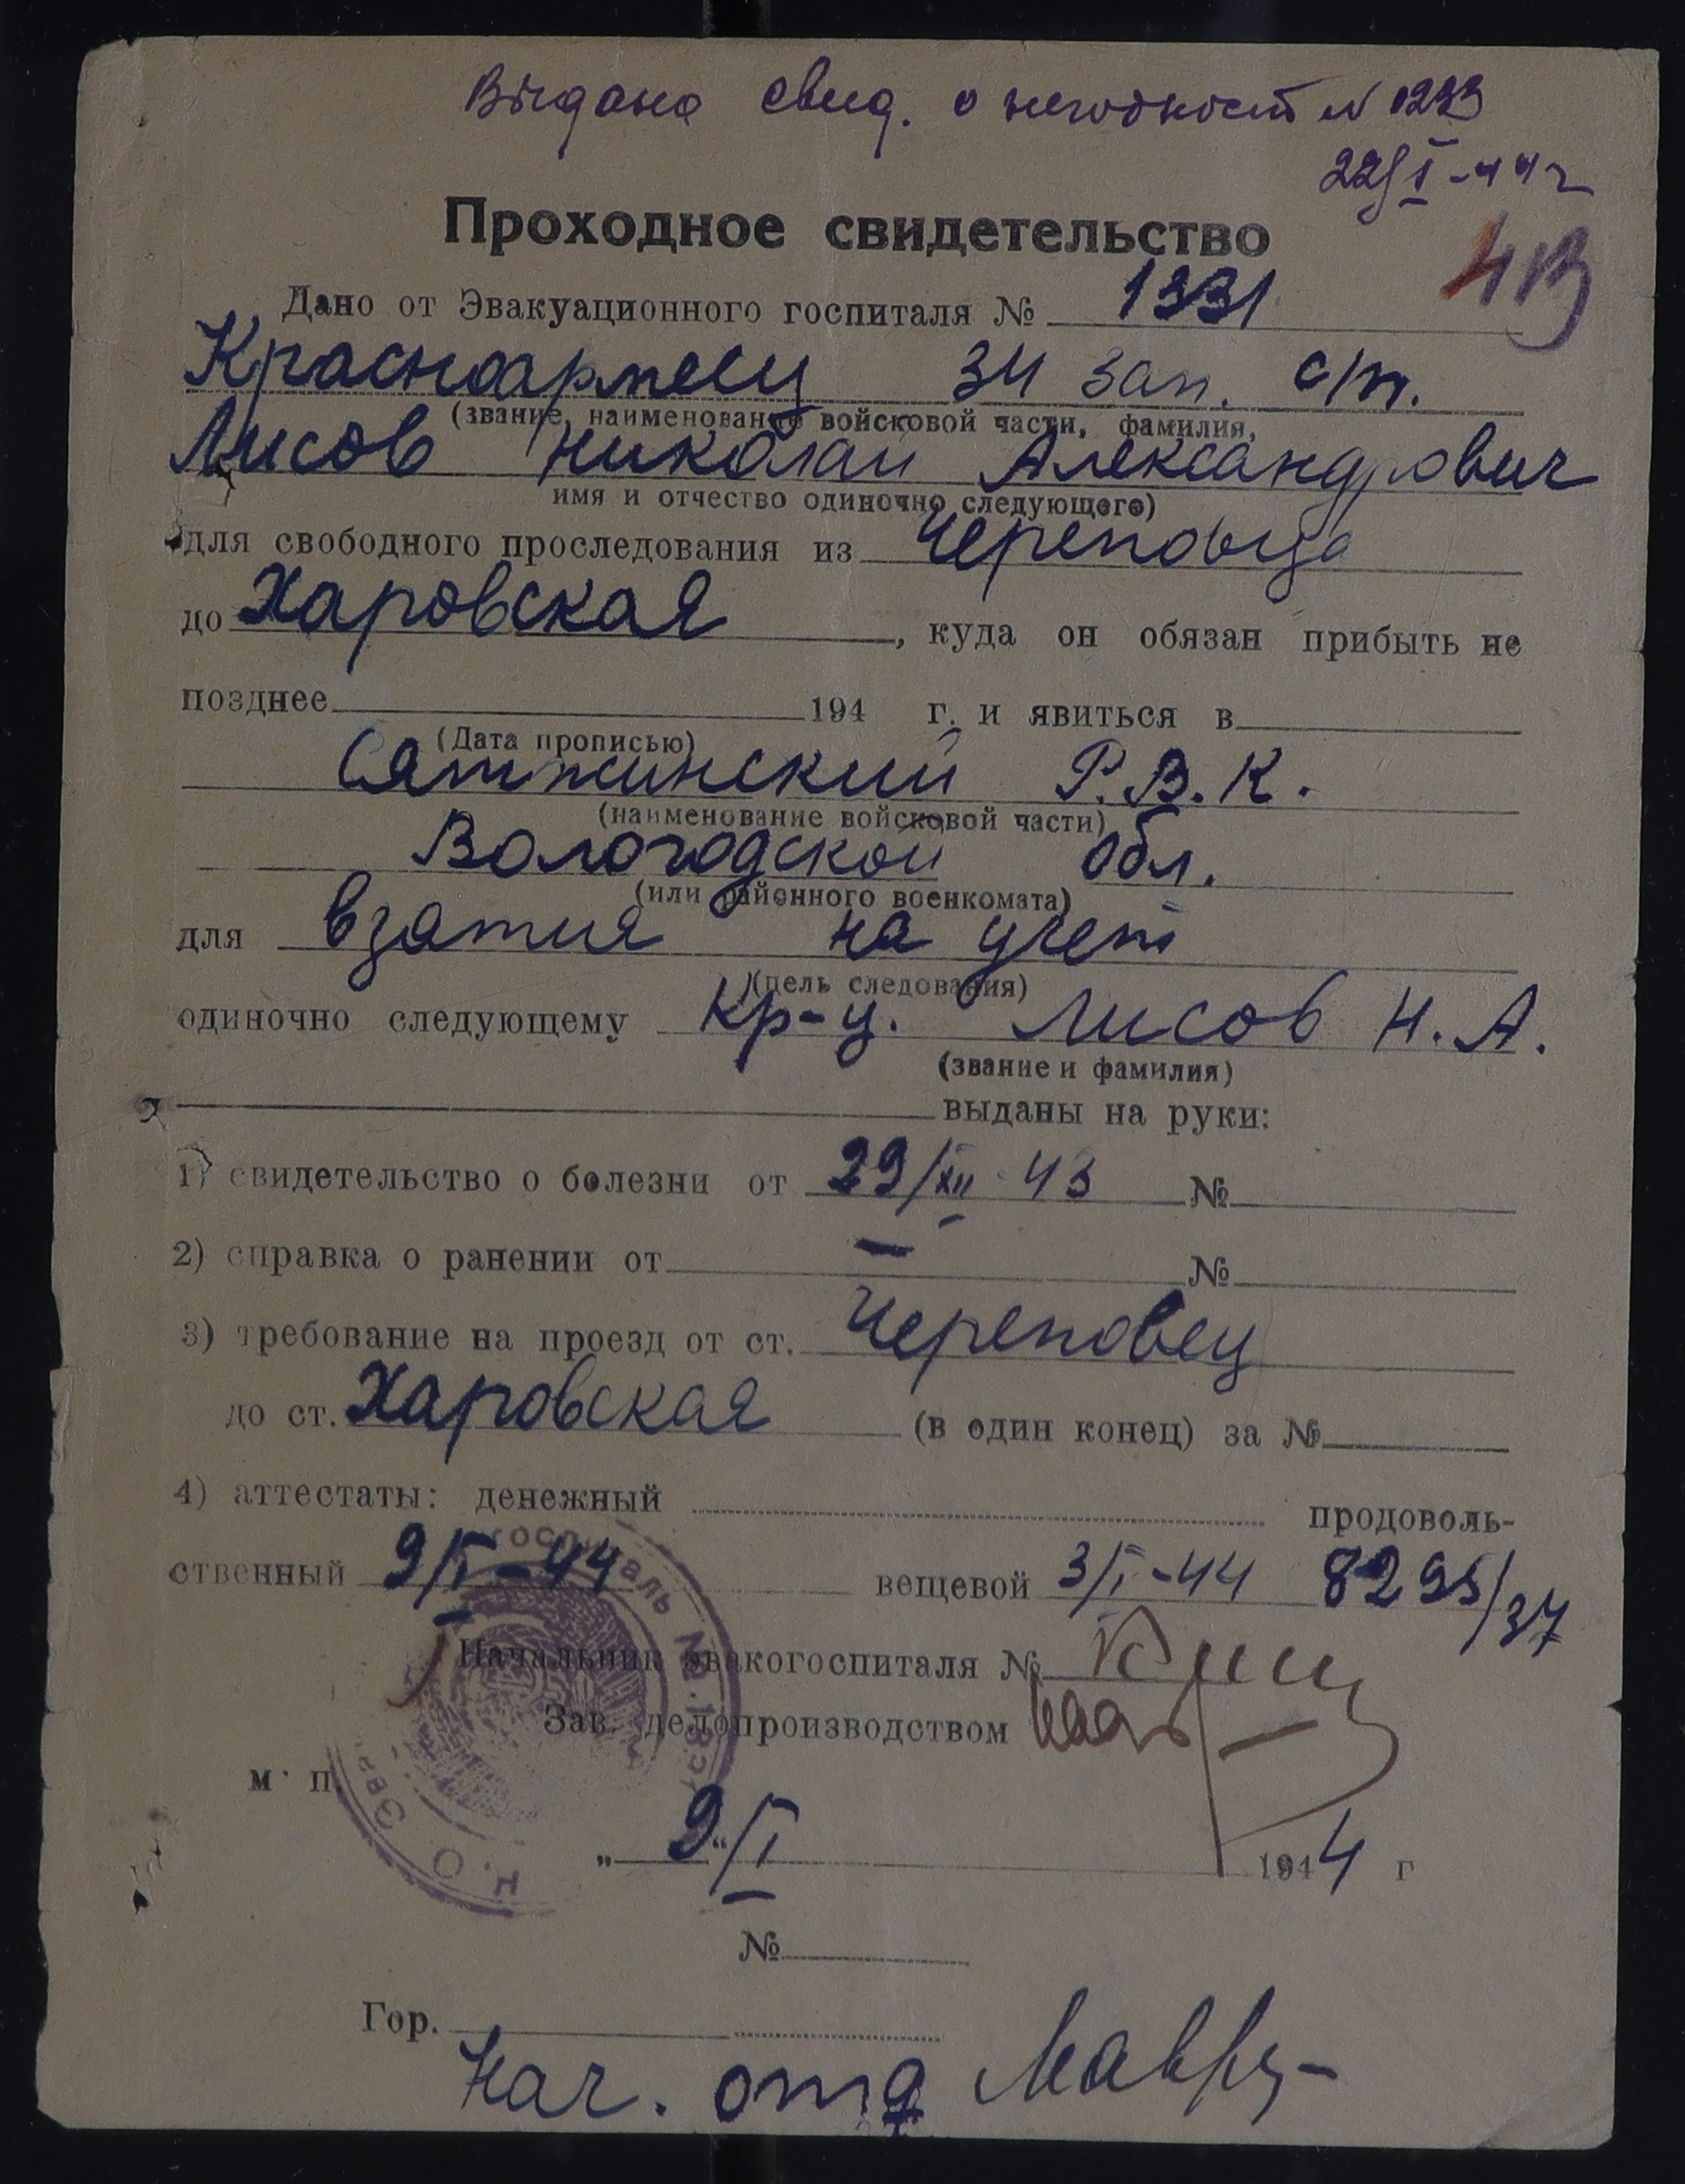 Выдано свид. о негодност N 1233
22/I-44 г
Проходное свидетельство
4В
Дано от Эвакуационного госпиталя № 1331
Красноармеец 34 зап. с/п.
(звание, наименование войсковой части, фамилия,
Лисов Николай Александрович
имя и отчество одиночно следующего)
для свободного проследования из Череповца
до Харовская, куда он обязан прибыть не
позднее 194 г. и явиться в
(Дата прописью)
Сямженский Р.В.К.
(наименование войсковой части)
Вологодской обл.
(или районного военкомата)
для взятия на учет
(цель следования)
одиночно следующему Кр-ц. Лисов Н.А.
(звание и фамилия)
выданы на руки:
1) свидетельство о болезни от 29/XII-43 №
2) справка о ранении от — №
3) требование на проезд от ст. Череповец
до ст. Харовская (в один конец) за №
4) аттестаты: денежный продоволь-
ственный 9/I-44 вещевой 3/I-44 8295/37
Начальник эвакогоспиталя №
Зав. делопроизводством
м. п.
„9“/I 1944 г
№
Гор.
Нач. отд